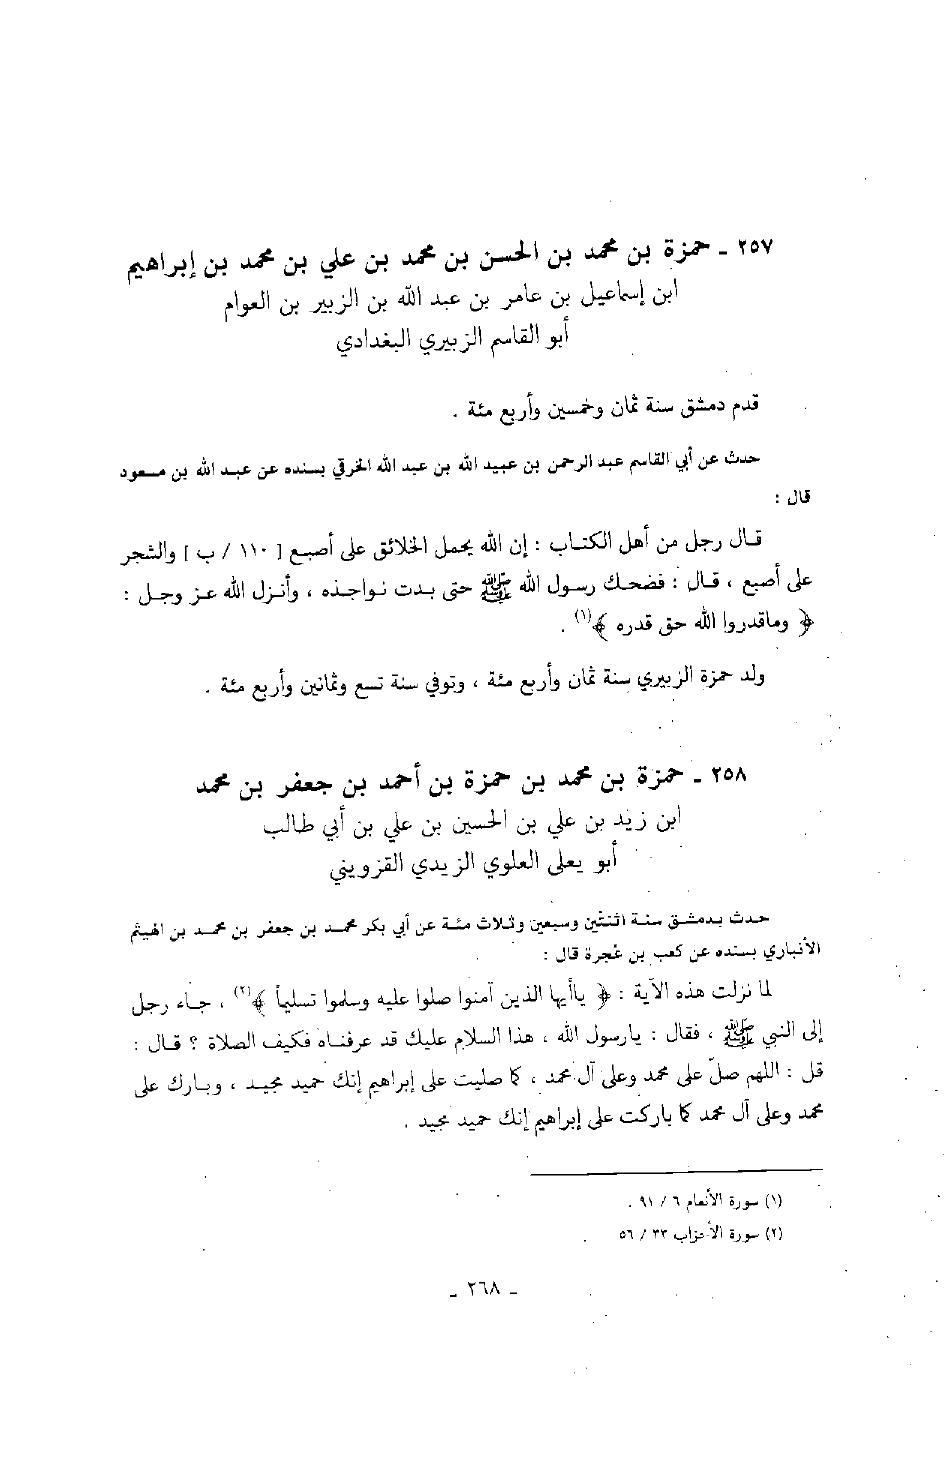 ٢٥٧ - حمزة بن محمد بن الحسن بن محمد بن علي بن محمد بن إبراهيم
ابن إسماعيل بن عامر بن عبد الله بن الزبير بن العوام
أبو القاسم الزبيري البغدادي
قدم دمشق سنة ثمان وخمسين وأربع مئة .
حدث عن أبي القاسم عبد الرحمن بن عبيد الله بن عبد الله الخرقي بسنده عن عبد الله بن مسعود
قال :
قال رجل من أهل الكتاب : إن الله يحمل الخلائق على أصبع [ ١١٠ / ب ] والشجر
على أصبع ، قال : فضحك رسول الله ﷺ حتى بدت نواجذه ، وأنزل الله عز وجل :
﴿ وماقدروا الله حق قدره ﴾(١) .
ولد حمزة الزبيري سنة ثمان وأربع مئة ، وتوفي سنة تسع وثمانين وأربع مئة .
٢٥٨ - حمزة بن محمد بن حمزة بن أحمد بن جعفر بن محمد
ابن زيد بن علي بن الحسين بن علي بن أبي طالب
أبو يعلى العلوي الزيدي القزويني
حدث بدمشق سنة اثنتين وسبعين وثلاث مئة عن أبي بكر محمد بن جعفر بن محمد بن الهيثم
الأنباري بسنده عن كعب بن عُجرة قال :
لما نزلت هذه الآية : ﴿ ياأيها الذين آمنوا صلوا عليه وسلموا تسليماً ﴾(٢) ، جاء رجل
إلى النبي ﷺ ، فقال : يارسول الله ، هذا السلام عليك قد عرفناه فكيف الصلاة ؟ قال :
قل : اللهم صلّ على محمد وعلى آل محمد ، كما صليت على إبراهيم إنك حميد مجيد ، وبارك على
محمد وعلى آل محمد كما باركت على إبراهيم إنك حميد مجيد .
(١) سورة الأنعام ٦ / ٩١ .
(٢) سورة الأحزاب ٣٣ / ٥٦
- ٢٦٨ -